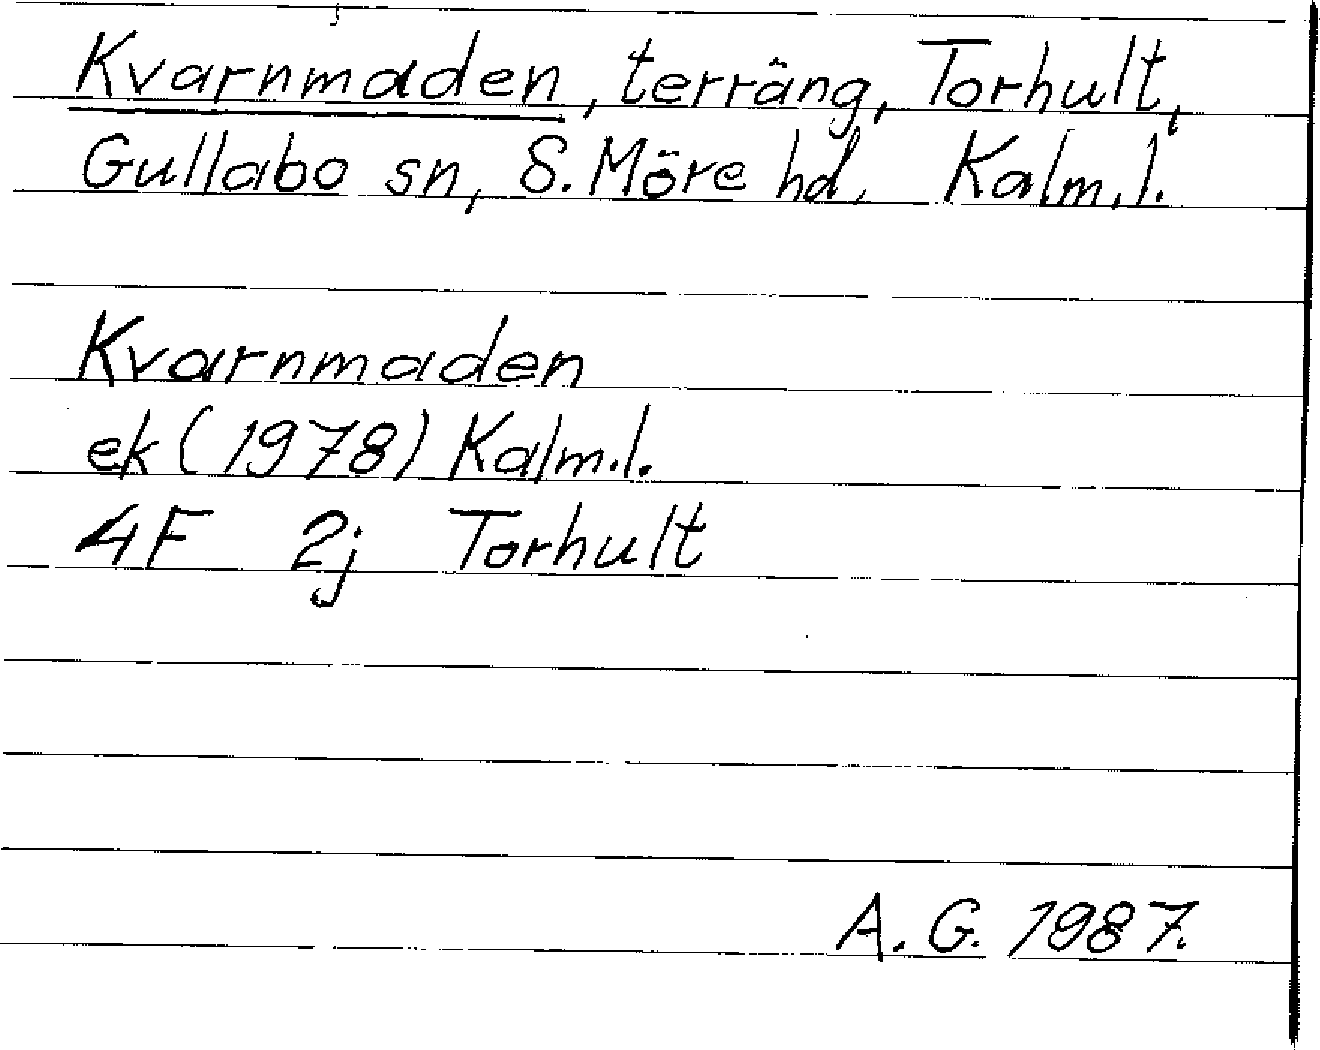 Kvarnmaden, terräng, Torhult,
Gullabo sn, S. Möre hd. Kalm.l.
Kvarnmaden
ek (1978) Kalm.l.
4F 2j Torhult
A. G. 1987.